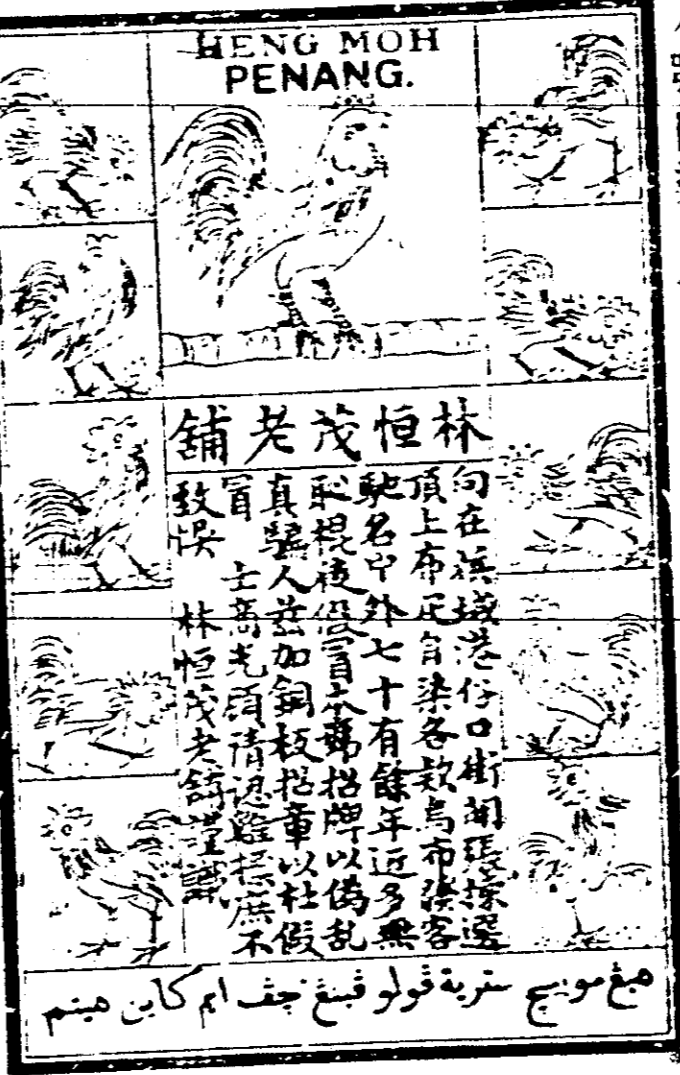 HENG MOH
PENANG.
林恒茂老舖
向在檳城港仔口街開張揀選
頂上布疋自染各欵烏布發客
馳名中外七十有餘年近多無
恥棍徒假冒本號招牌以偽乱
真騙人茲加銅板招章以杜假
冒 士商光顧請認雞標庶不
致悞 林恒茂老舖謹識
هيڠ مو سترية ڤولو ڤينڠ چڤ ايم كاين هيتم